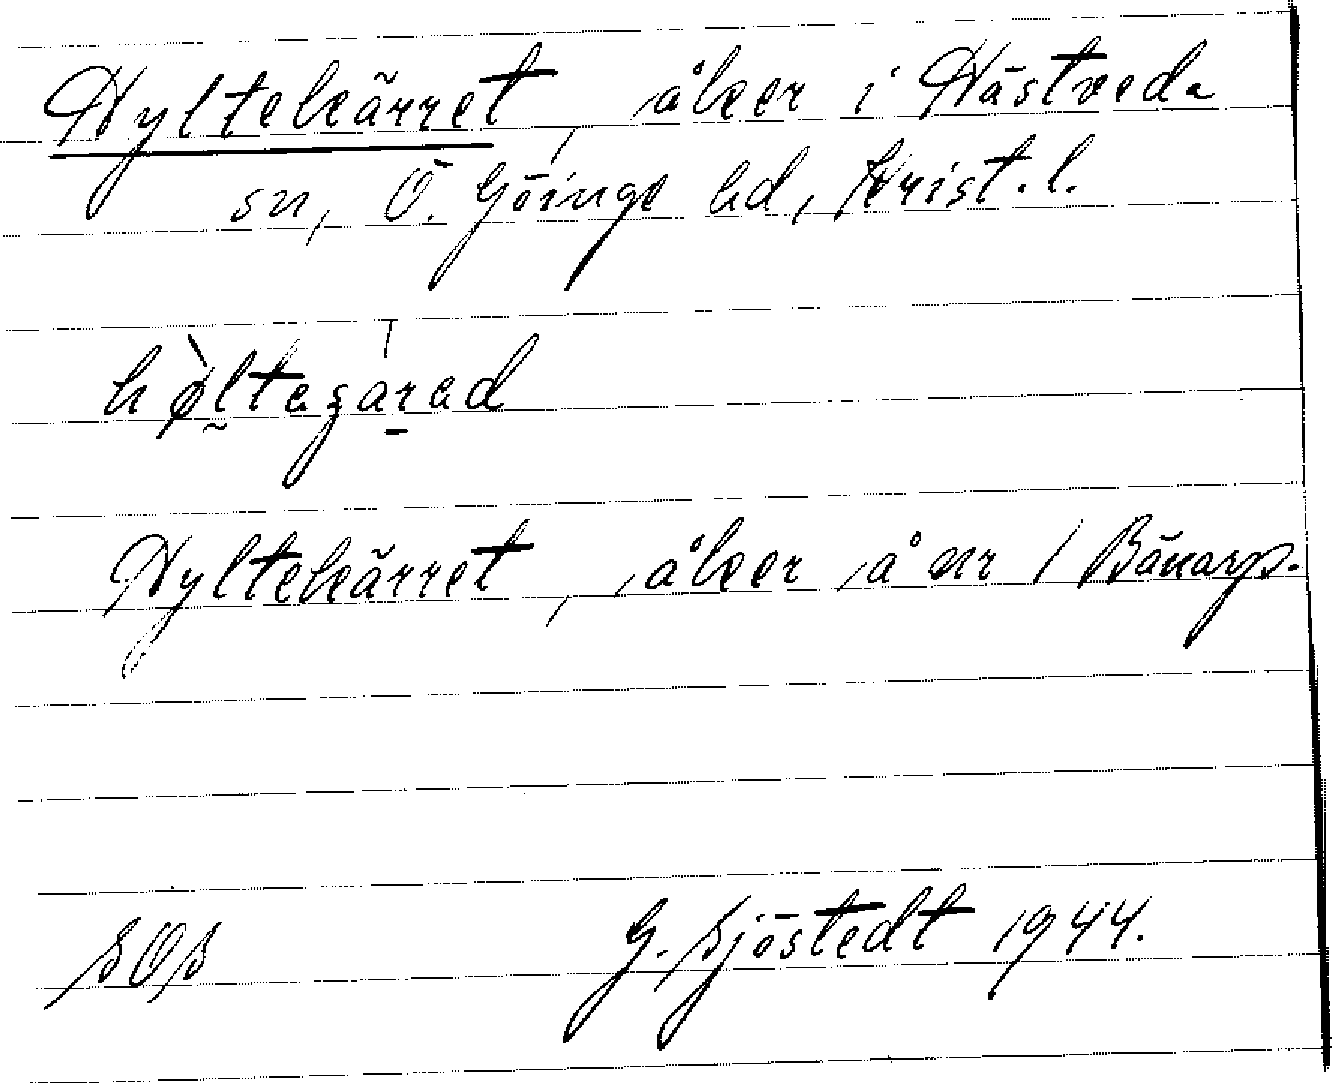 Hyltekärret, åker i Hästveda
sn, Ö. Göinge hd, Krist. l.
Hyltekärret, åker å nr 1 Bänarp.
SOS G. Sjöstedt 1944.